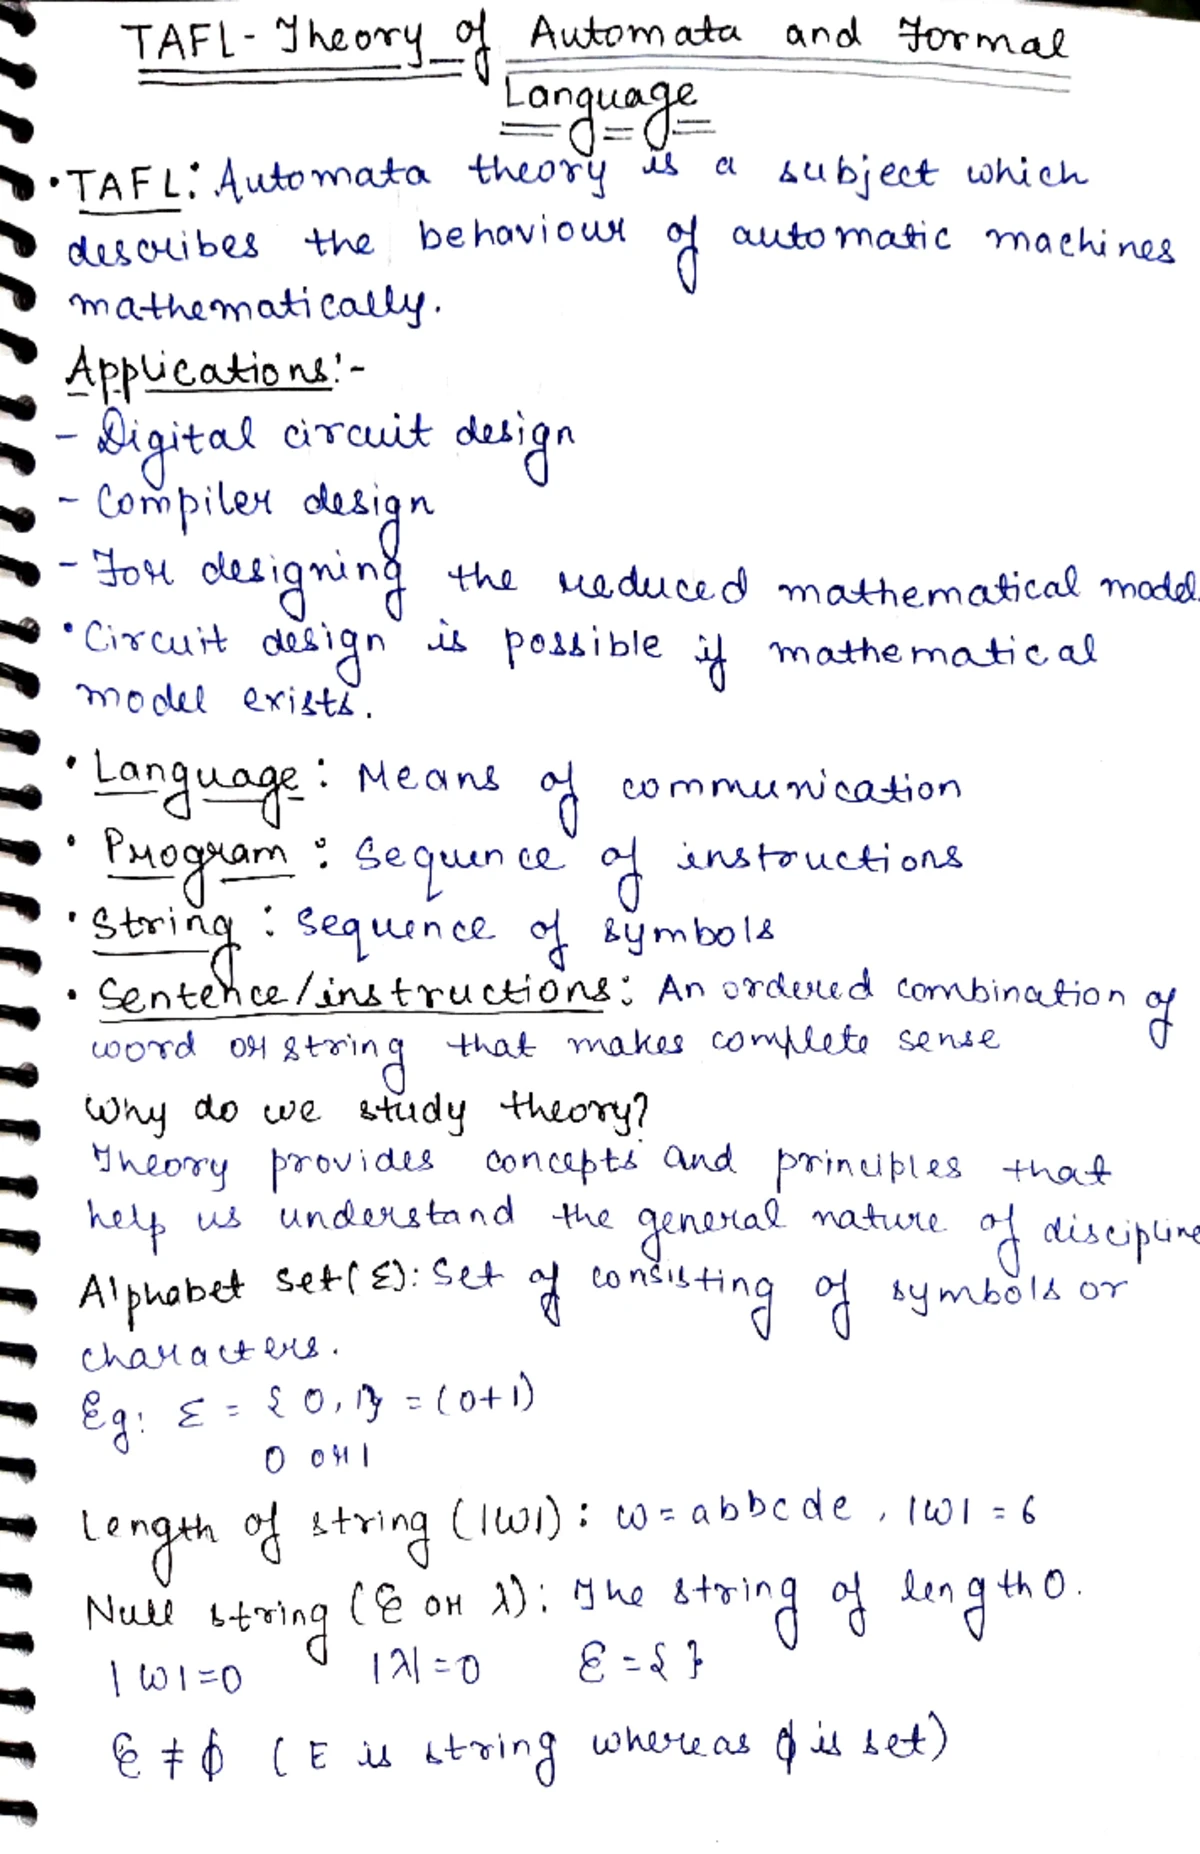 TAFL - Theory of Automata and Formal
Language
• TAFL: Automata theory is a subject which
describes the behaviour of automatic machines
mathematically.
Applications:-
- Digital circuit design
- Compiler design
- For designing the reduced mathematical model.
• Circuit design is possible if mathematical
model exists.
• Language: Means of communication
• Program: Sequence of instructions
• String: Sequence of symbols
• Sentence/instructions: An ordered combination of
word or string that makes complete sense
Why do we study theory?
Theory provides concepts and principles that
help us understand the general nature of discipline
Alphabet set(Σ): Set of consisting of symbols or
characters.
Eg: Σ = {0,1} = (0+1)
0 or 1
Length of string (|W|): ω = abbcde, |ω| = 6
Null string (ε or λ): The string of length 0.
|ω|=0 |λ|=0 ε = { }
ε ≠ ϕ (E is string whereas ϕ is set)